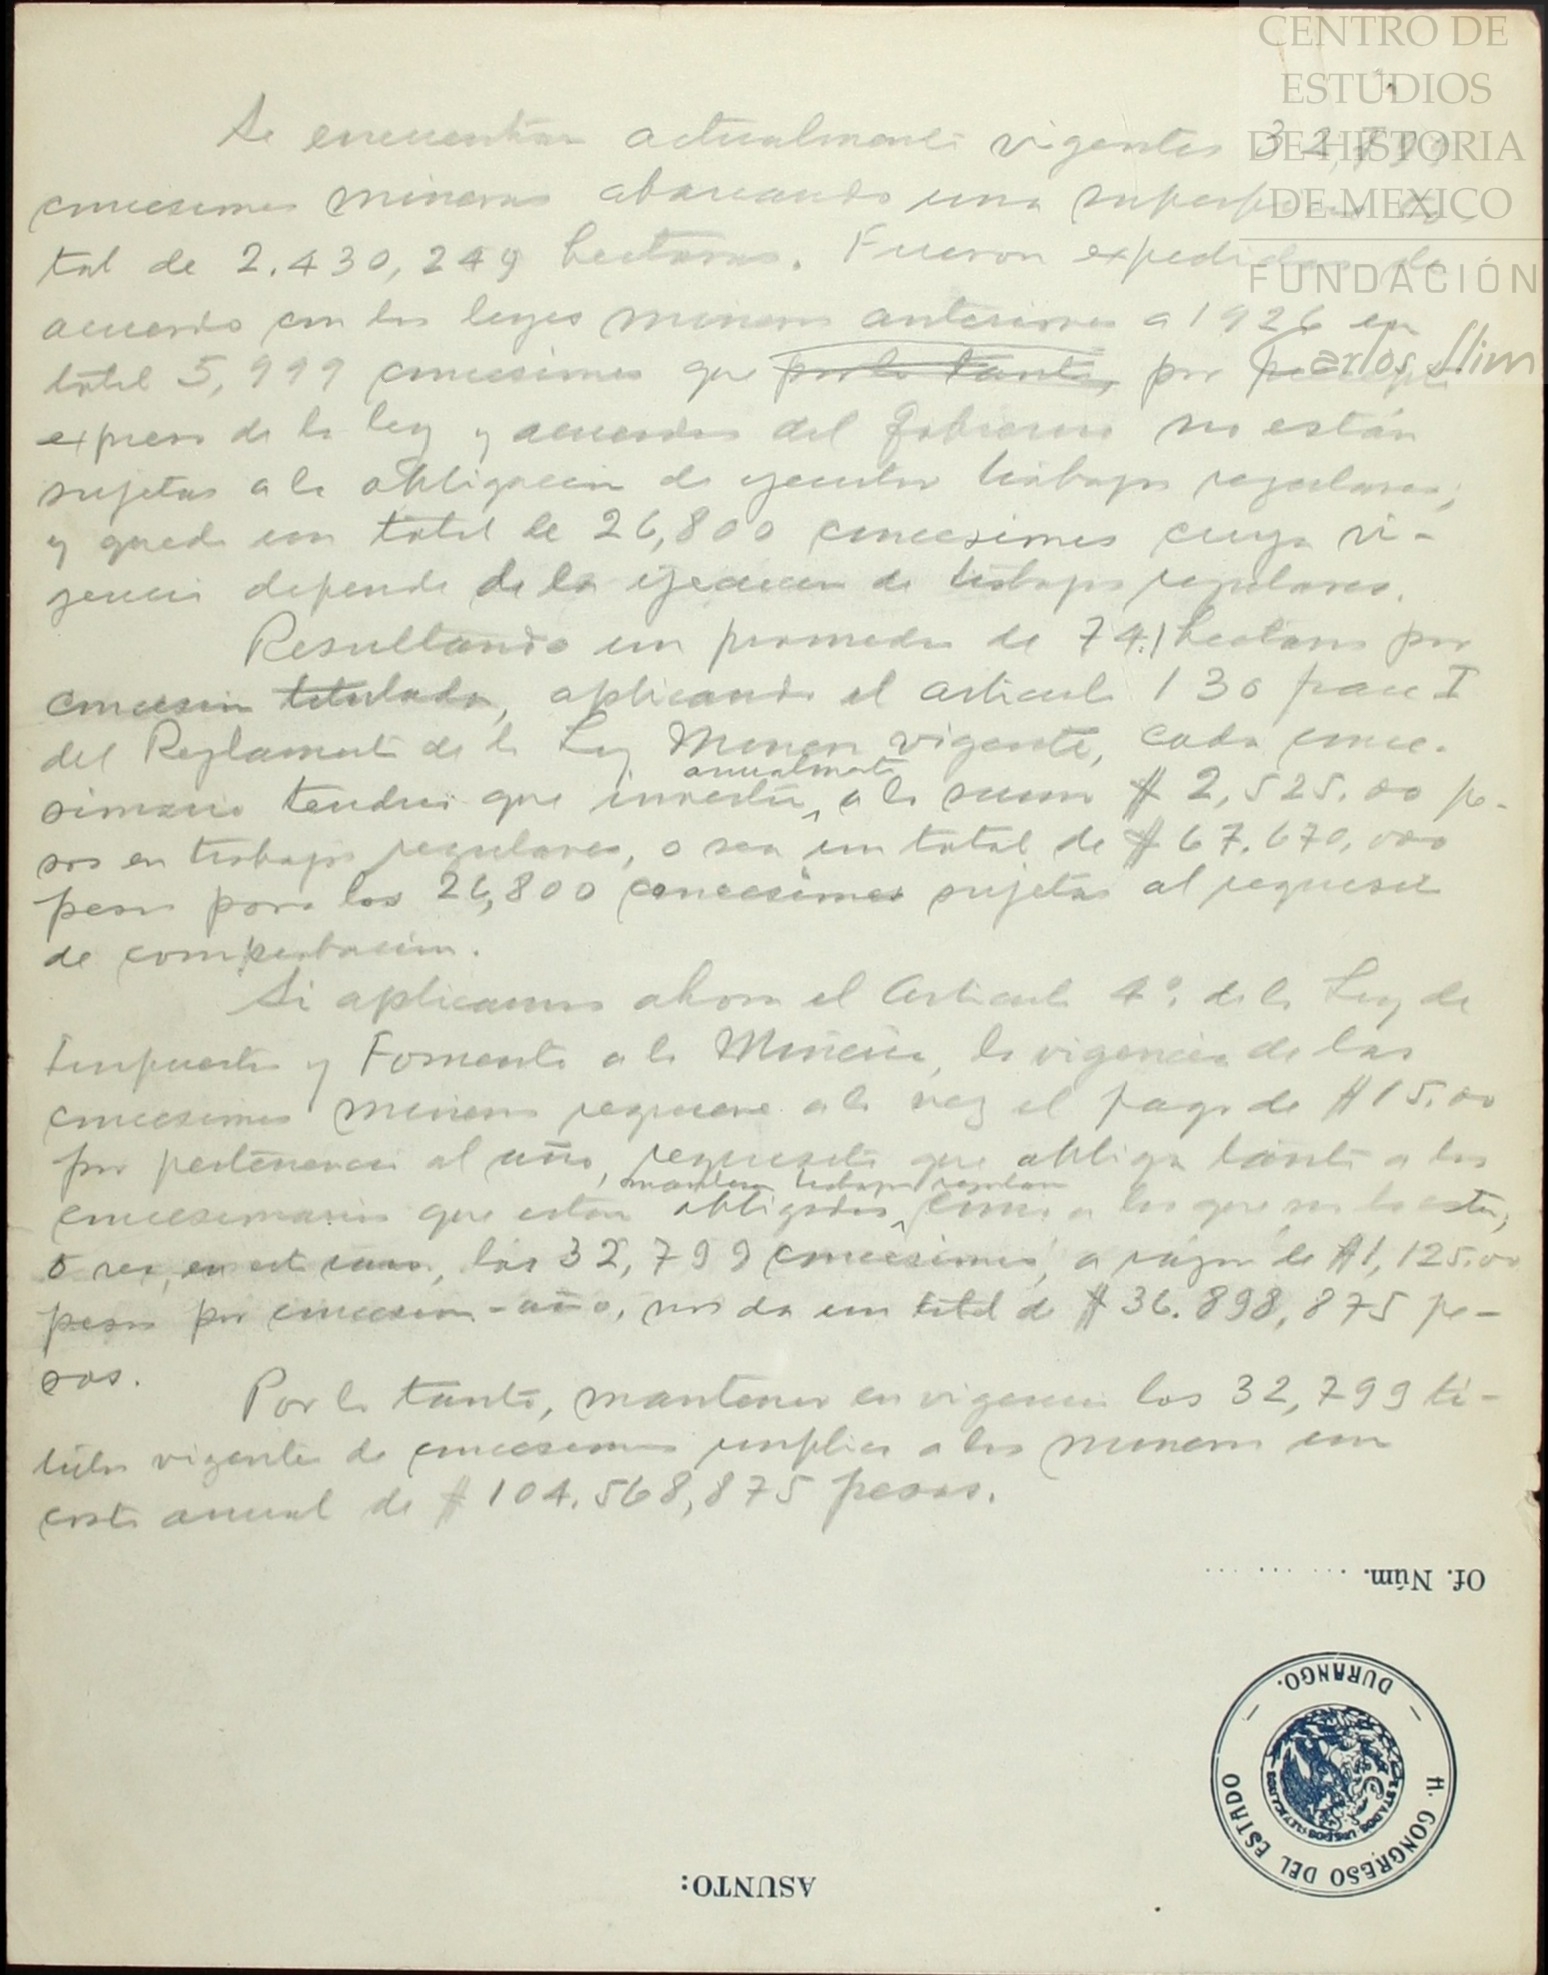 CENTRO DE
ESTUDIOS
DE HISTORIA
DE MEXICO
FUNDACIÓN
Carlos Slim
Se encuentran actualmente vigentes 32,799
concesiones mineras abarcando una superficie to
tal de 2.430,249 hectareas. Fueron expedidas de
acuerdo con las leyes mineras anteriores a 1926 en
total 5,999 concesiones que por lo tanto, por
expreso de la ley y acuerdos del Gobierno no están
sujetas a la obligación de ejecutar trabajos regulares,
y queda un total de 26,800 concesiones cuya vi-
gencia depende de la ejecucion de trabajos regulares.
Resultando un promedio de 74.1 hectareas por
concesión titulada, aplicando el articulo 130 fracc I
del Reglamento de la Ley Minera vigente, cada conce-
anualmente
sionario tendria que invertir a la suma $ 2,525.00 pe-
sos en trabajos regulares, o sea un total de $ 67.670,000
pesos para las 26,800 concesiones sujetas al requisito
de comprobación.
Si aplicamos ahora el Articulo 4º. de la Ley de
Impuestos y Fomento a la Minería, la vigencia de las
concesiones mineras requiere a la vez el pago de $15.00
por pertenencia al año, requisito que obliga tanto a los
mantener trabajos regulares
concesionarios que estan obligados como a los que no lo estan,
o sea, en este caso, las 32,799 concesiones, a razon de $1,125.00
pesos por concesion-año, nos da un total de $ 36.898,875 pe-
sos.
Por lo tanto, mantener en vigencia los 32,799 ti-
tulos vigentes de concesiones implica a los mineros un
costo anual de $ 104.568,875 pesos.
Of. Núm. ... ... ...
H. CONGRESO DEL ESTADO
— DURANGO. —
ESTADOS UNIDOS MEXICANOS
ASUNTO: